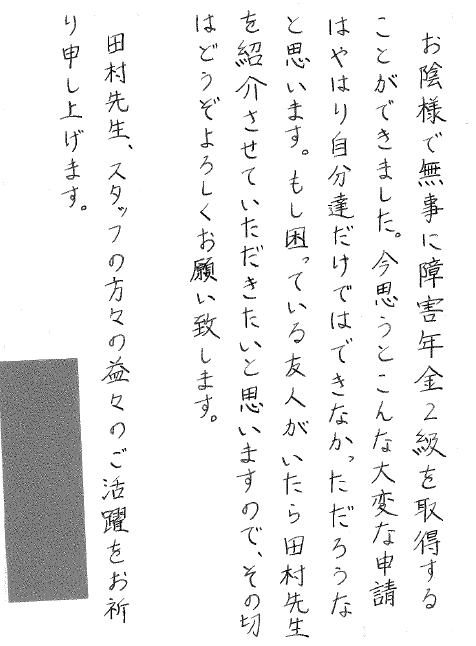 お陰様で無事に障害年金2級を取得する
ことができました。今思うとこんな大変な申請
はやはり自分達だけではできなかっただろうな
と思います。もし困っている友人がいたら田村先生
を紹介させていただきたいと思いますので、その切
はどうぞよろしくお願い致します。
田村先生、スタッフの方々の益々のご活躍をお祈
り申し上げます。